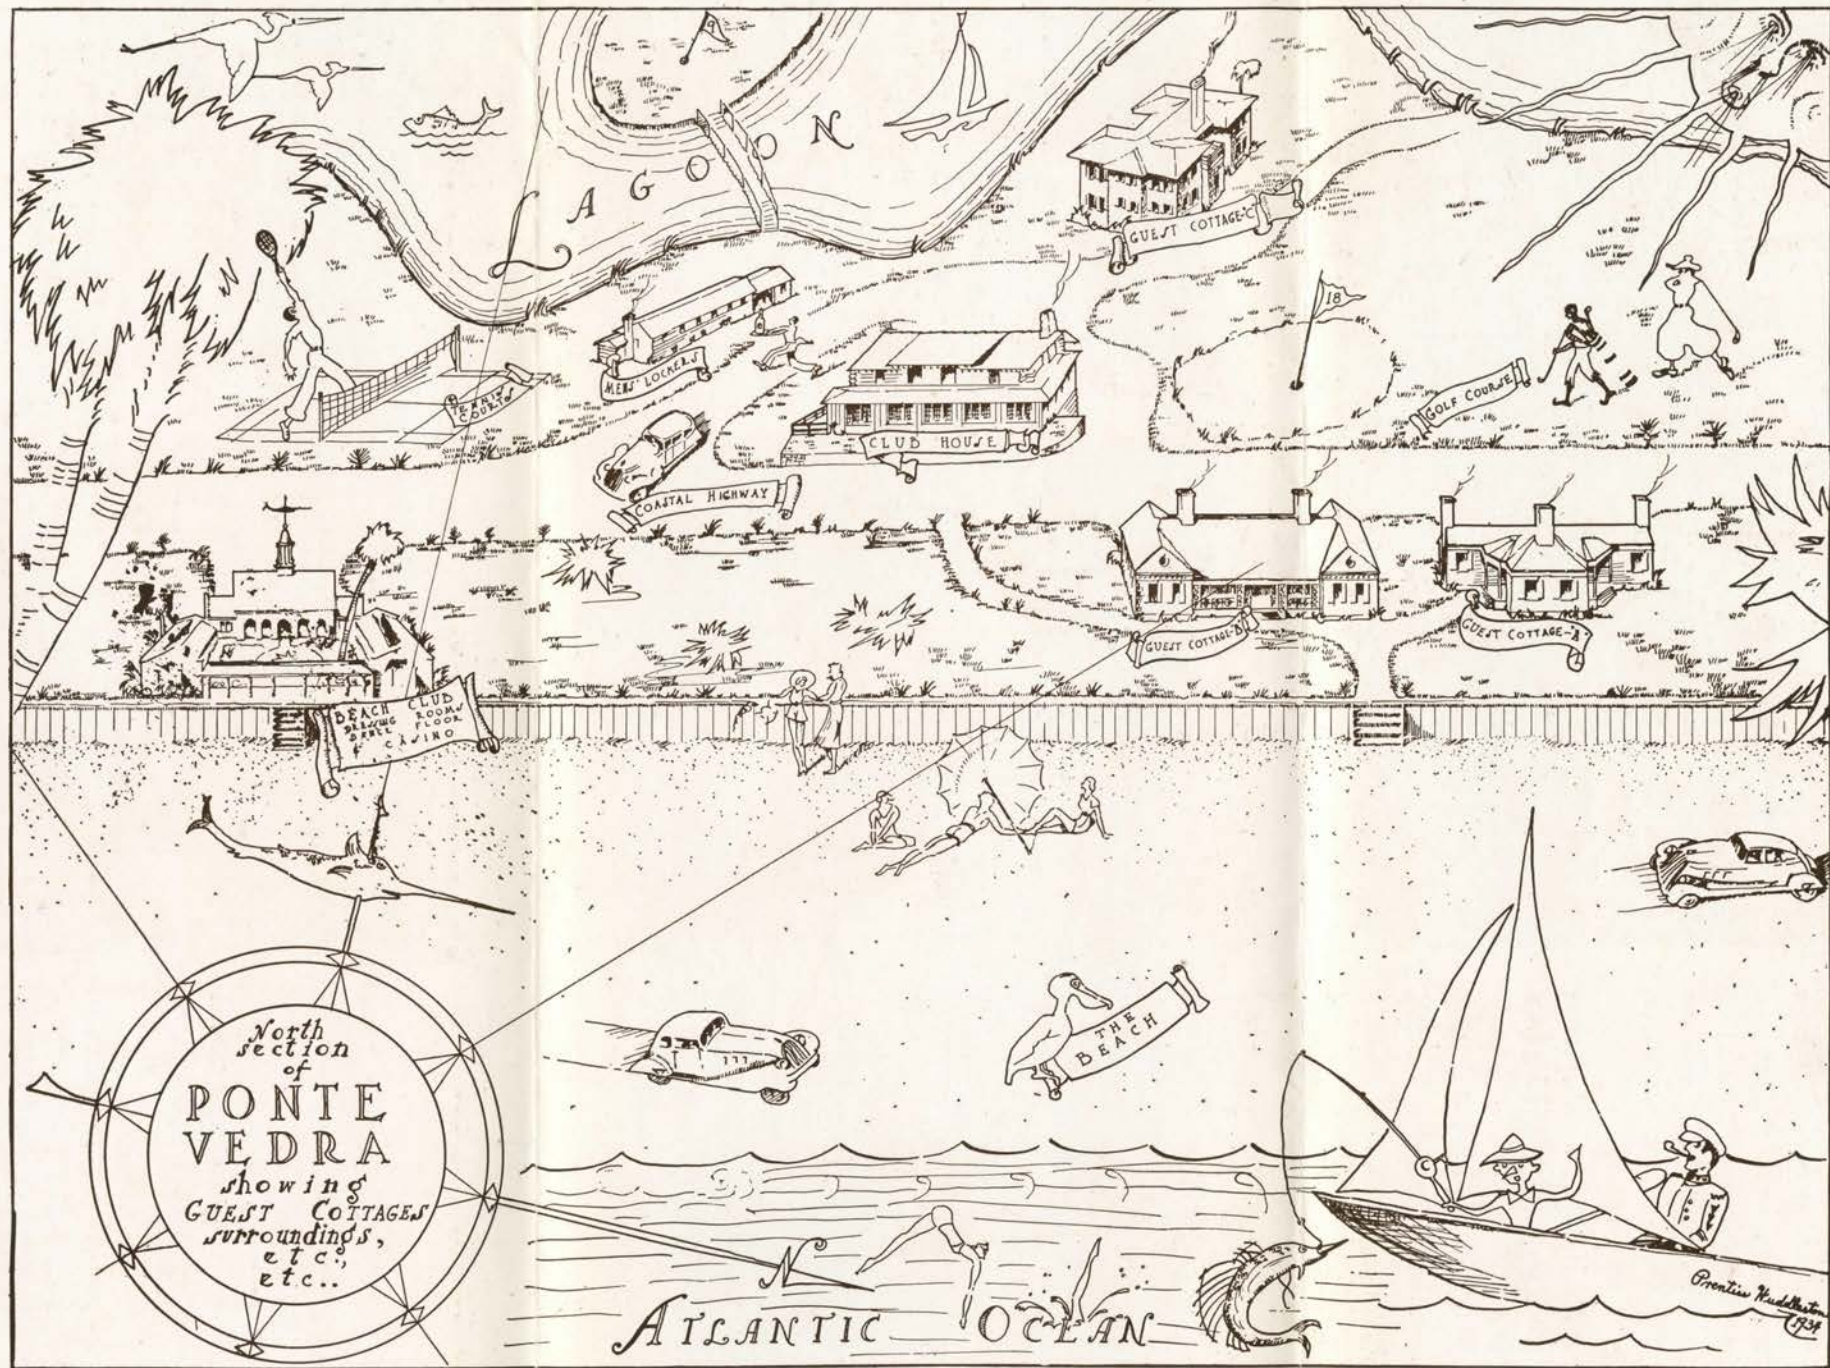 9
LAGOON
GUEST COTTAGE-C
MENS' LOCKERS
18
TENNIS
COURTS
GOLF COURSE
CLUB HOUSE
COASTAL HIGHWAY
GUEST COTTAGE-B
GUEST COTTAGE-"A"
BEACH CLUB
DRESSING ROOMS
DANCE FLOOR
& CASINO
THE
BEACH
North
section
of
PONTE
VEDRA
showing
GUEST COTTAGES
surroundings,
etc.,
etc..
N
ATLANTIC OCEAN
Prentiss Huddleston
1934